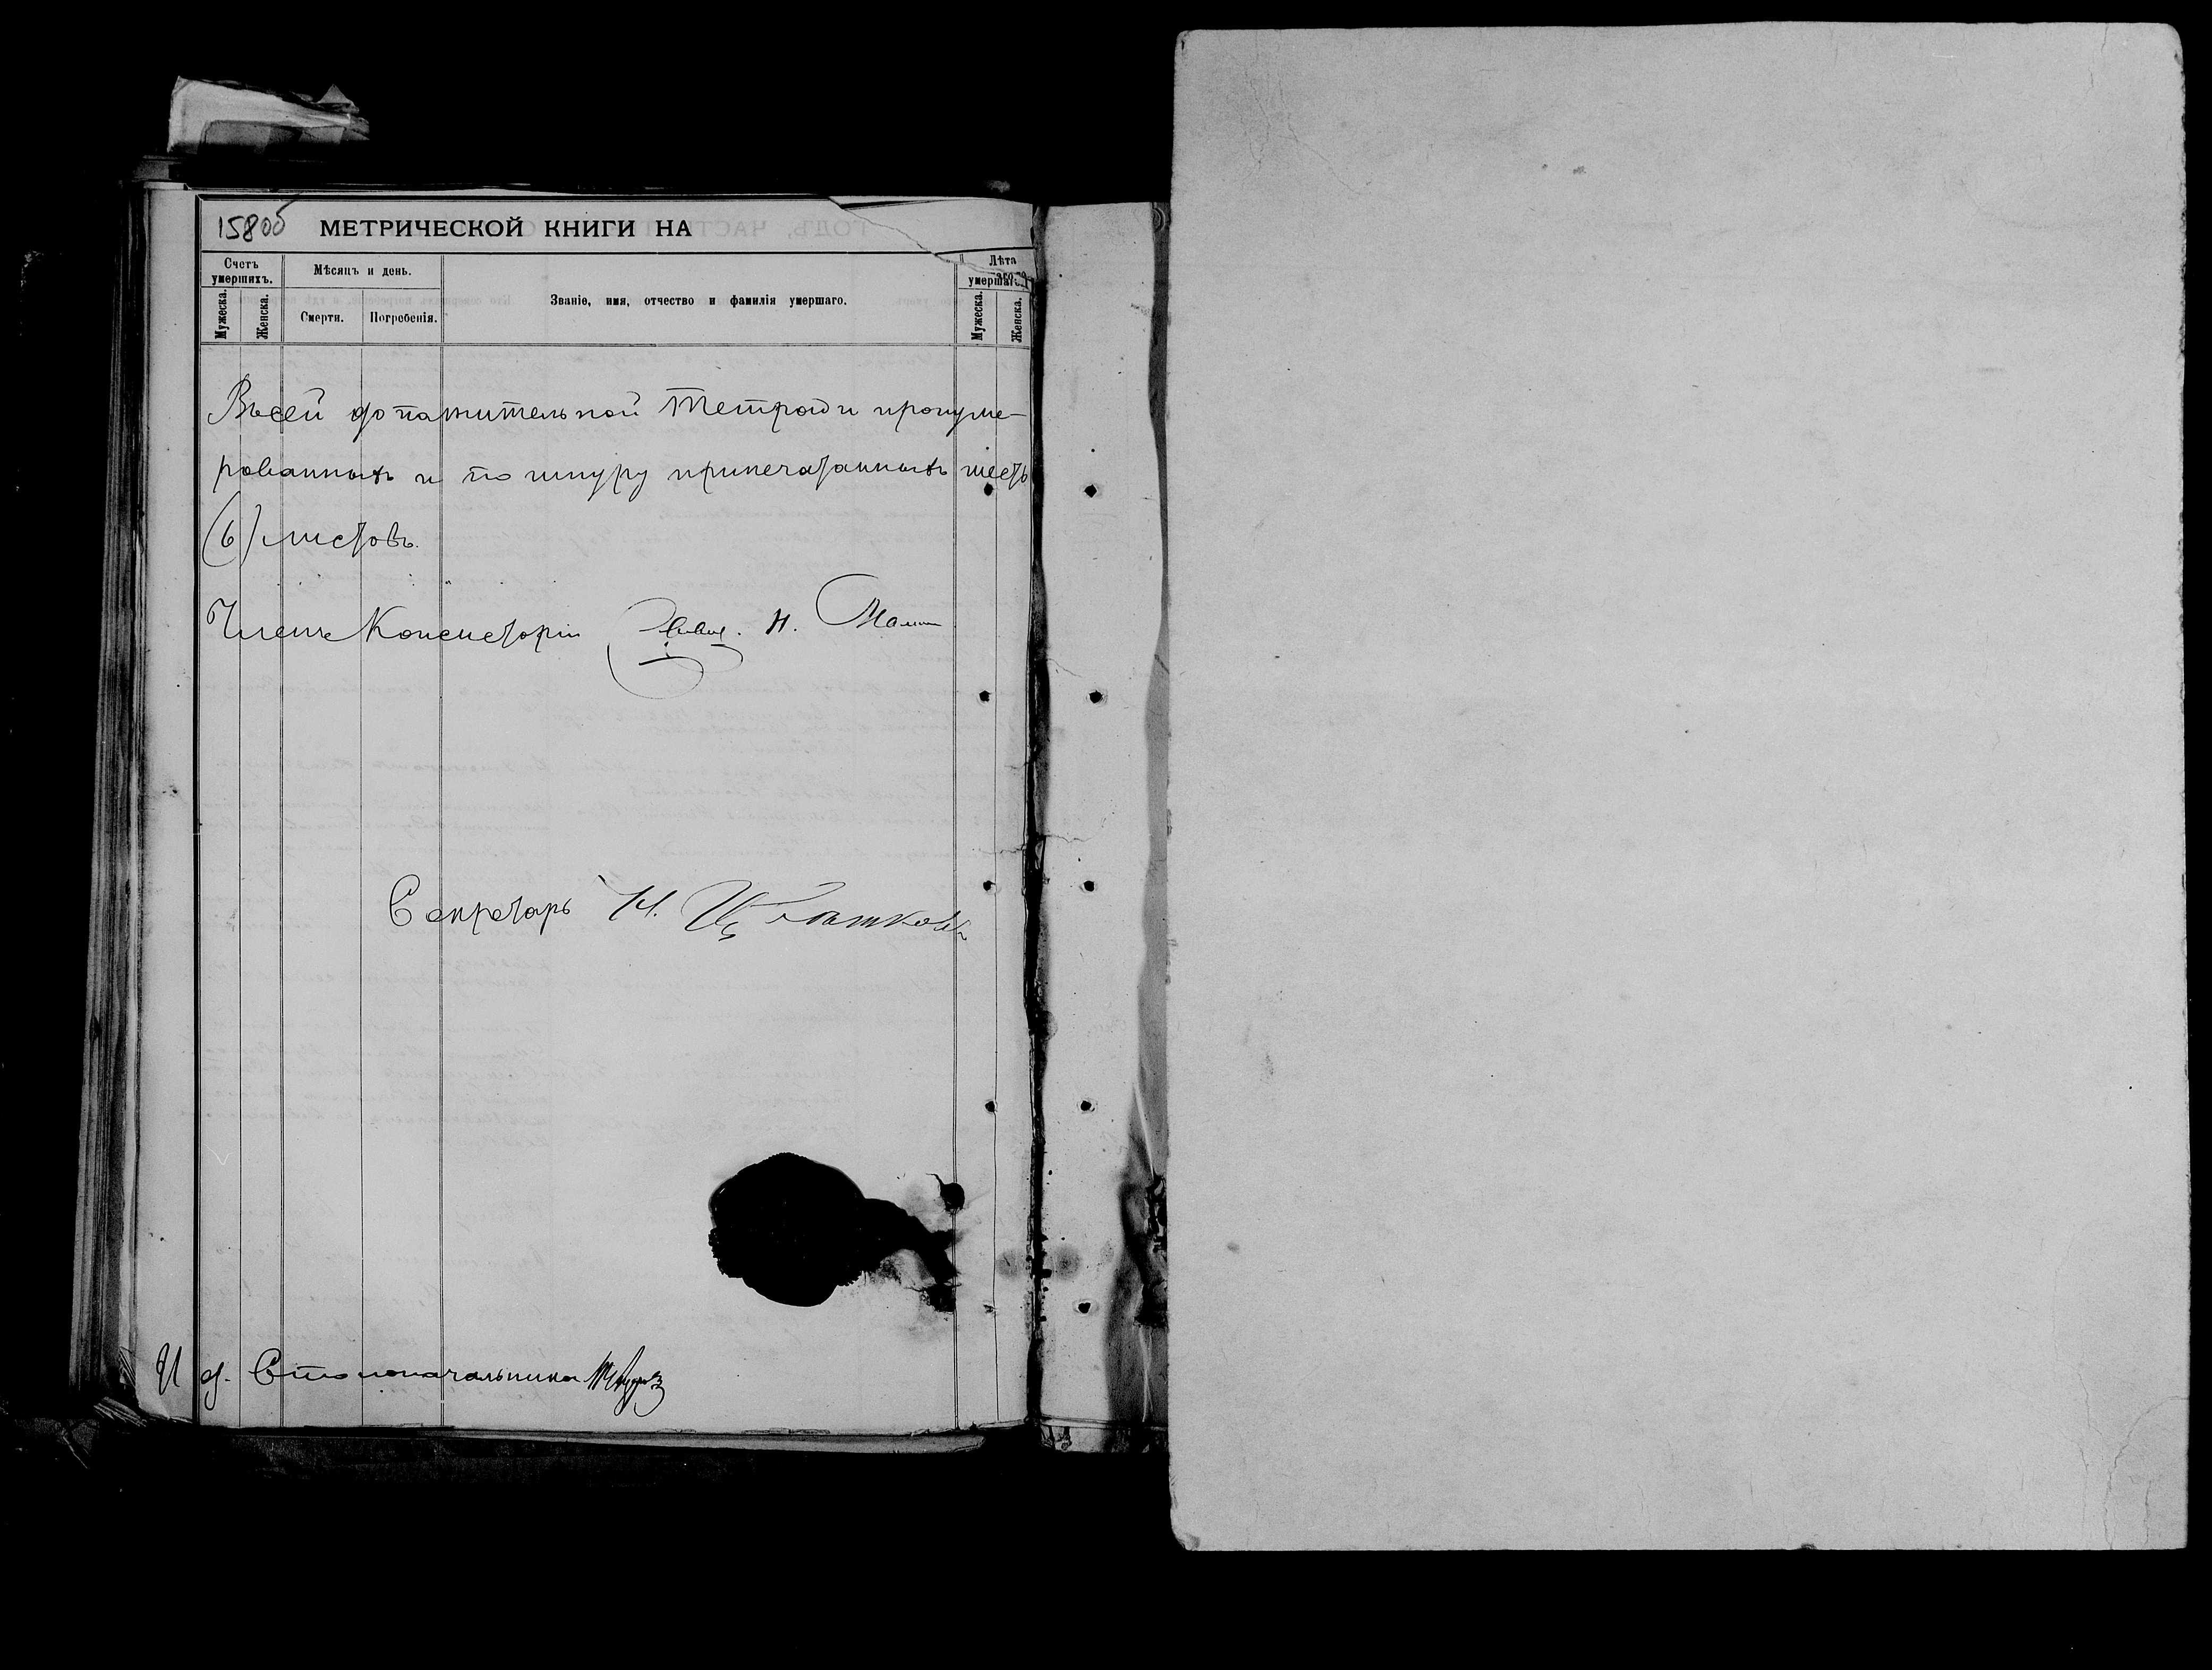 158об МЕТРИЧЕСКОЙ КНИГИ НА
Счетъ умершихъ.
Мужеска.
Женска.
Мѣсяцъ и день.
Смерти.
Погребенія.
Званіе, имя, отчество и фамилія умершаго.
Лѣта умершаго.
Мужеска.
Женска.
Въ сей дополнительной тетради пронуме-
рованныхъ и по шнуру припечатанныхъ шесть
(6) листовъ.
Членъ Консисторіи
Секретарь Н.
И. д. Столоначальника